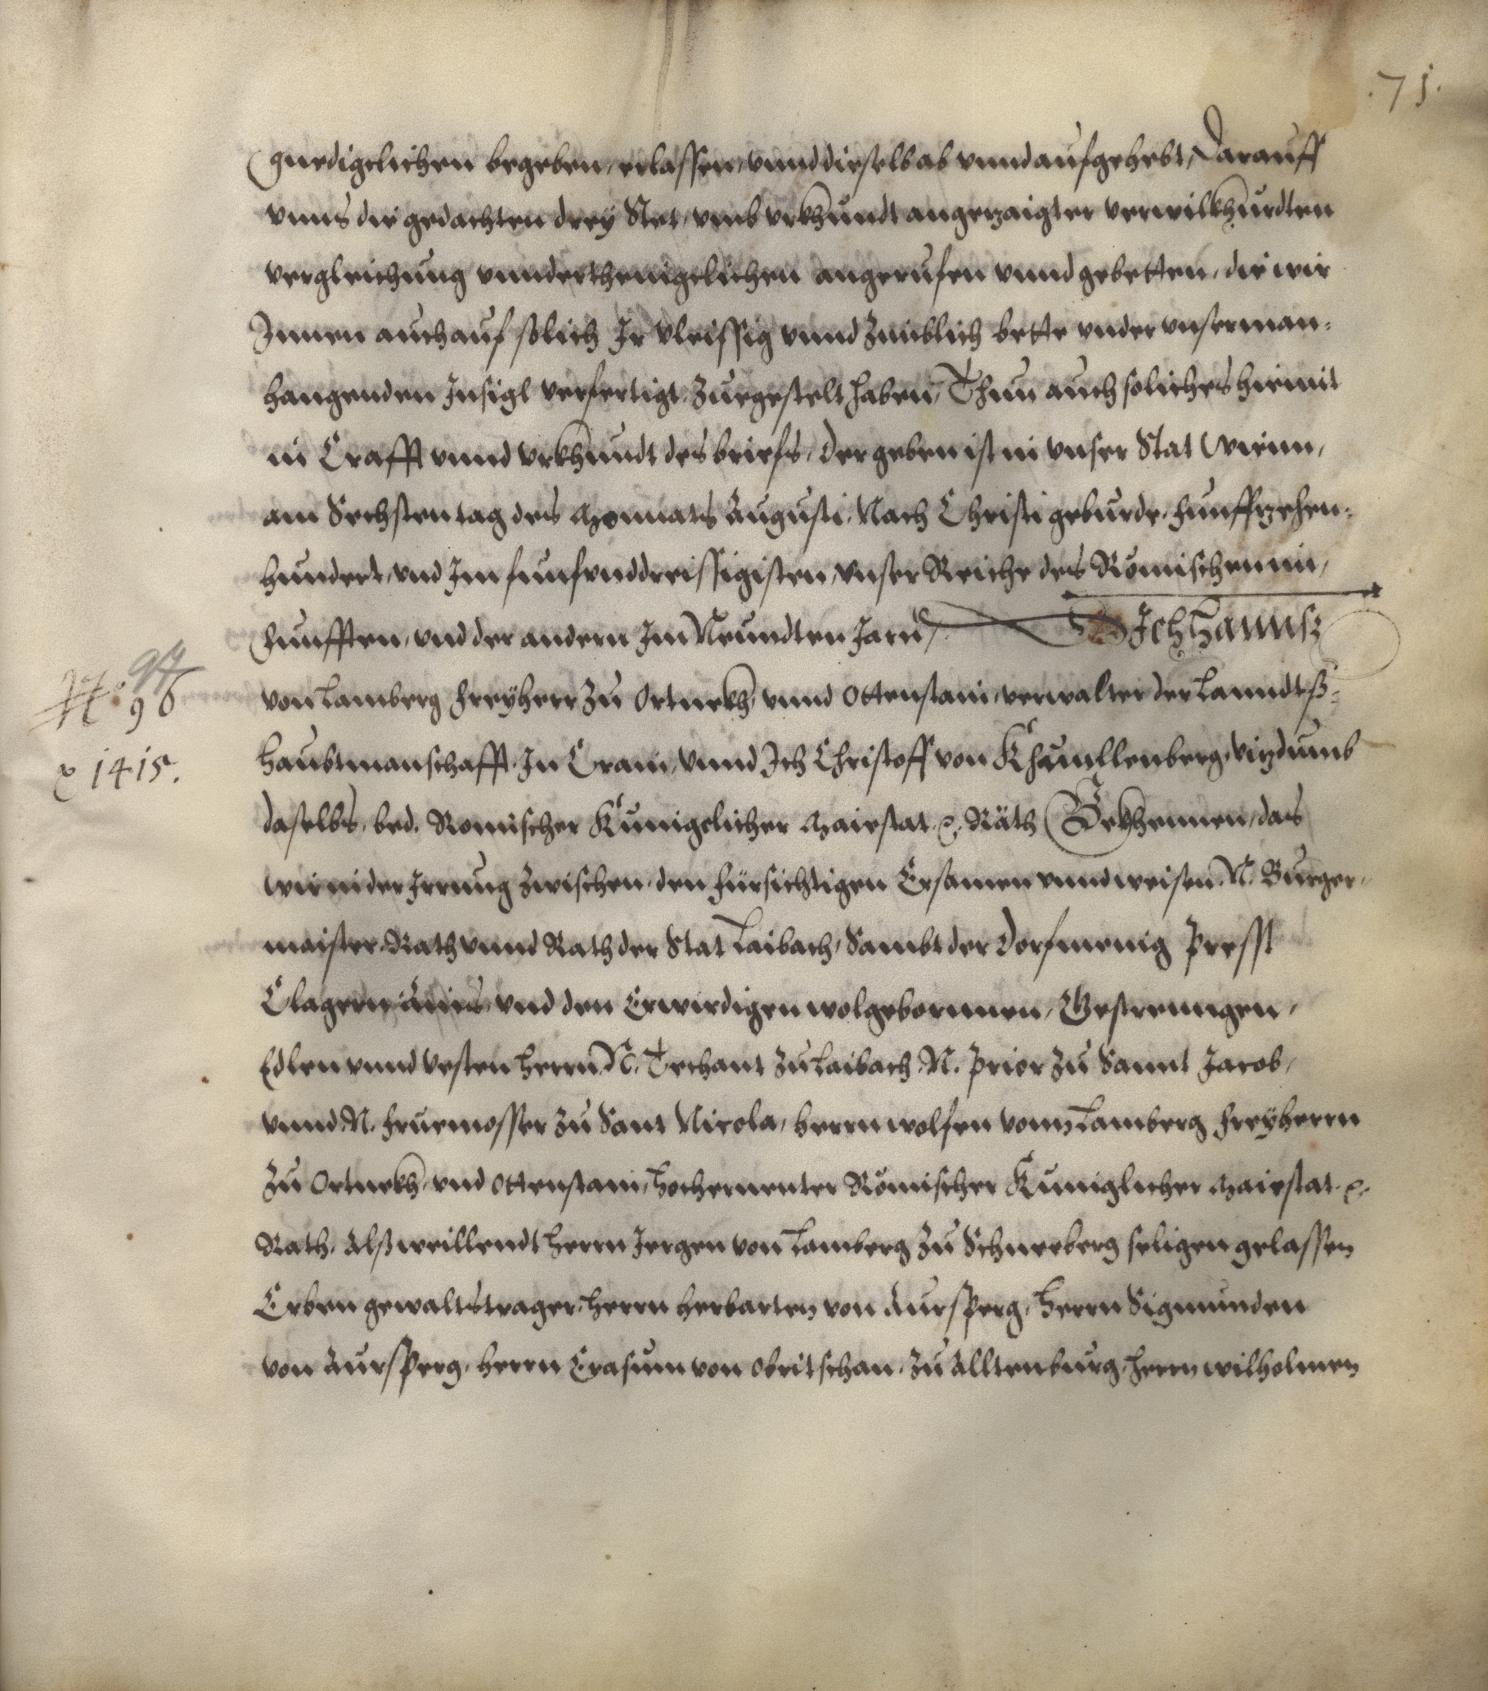 .71.
gnedigclichen begeben, erlassen, vnnd dieselb ab vnnd aufgehebt, Darauff
vnns die gedachten drey Stet, vmb vrkhundt angezaigter verwilkhurdten
vergleichung vnnderthenigclichen angerufen vnnd gebetten, die wir
Innen auch auf solich Ir vleissig vnnd zimblich bette vnder vnserm an=
hangenden Insigl verfertigt zuegestelt haben, Thun auch soliches hiemit
in Crafft vnnd vrkhundt des briefs, der geben ist in vnser Stat Wienn,
am Sechsten tag des Monnats Augusti, Nach Christi geburde, funffzehen=
hundert, vnd Im funfvnddreissigisten, vnser Reiche des Römischen im,
funfften, vnd der andern Im Neundten Jarn, Ich Hannß
von Lamberg freyherr zu Ortnekh, vnnd Ottenstain, verwalter der Lanndtß=
N.o 94
N.o 96
1415.
haubtmanschafft, In Crain, vnnd Ich Christoff von Khnullenberg, vitzdumb
daselbs, bed. Romischer Kunigclicher Maiestat &. Räth Bekhennen, das
wir in der Irrung zwischen, den fürsichtigen Ersamen vnnd weisen N. Burger=
maister, Rath vnnd Rath der Stat Laibach, Sambt der Dorfmenig Presst
Clagern ains, vnd den Erwirdigen wolgebornnen, Gestrenngen,
Edlen vnnd vesten herrn N. Techant zu Laibach, N. Prior zu Sannt Jacob,
vnnd N. fruemosser zu Sant Nicola, herrn wolfen vonn Lamberg freyherrn
zu Ortnekh, vnd Ottenstain, hochernenter Römischer Kuniglicher Maiestat &.
Rath, Alß weillendt herrn Jergen von Lamberg zu Schneeberg seligen gelassen
Erben gewaltstrager, herrn herbarten von Aursperg, herrn Sigmunden
von Aursperg, herrn Erasum von Obritschan, zu Alltenburg, herrn wilholmen